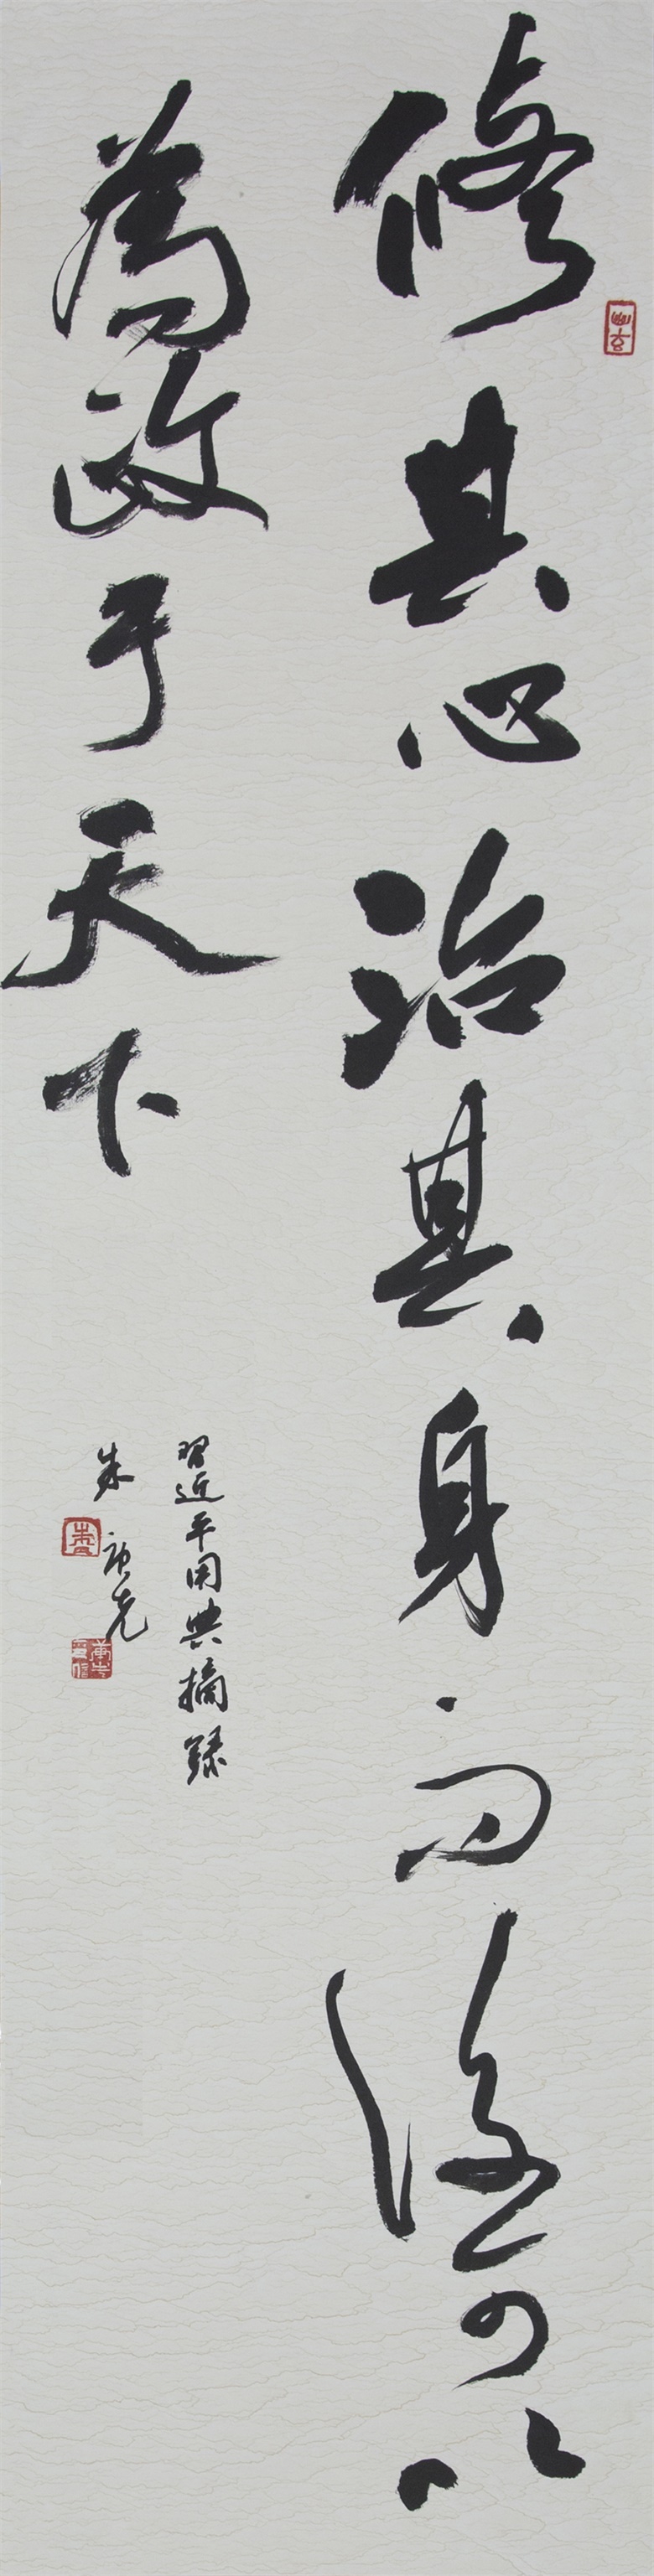 修其心治其身而後可以
為政于天下
習近平用典摘錄
朱